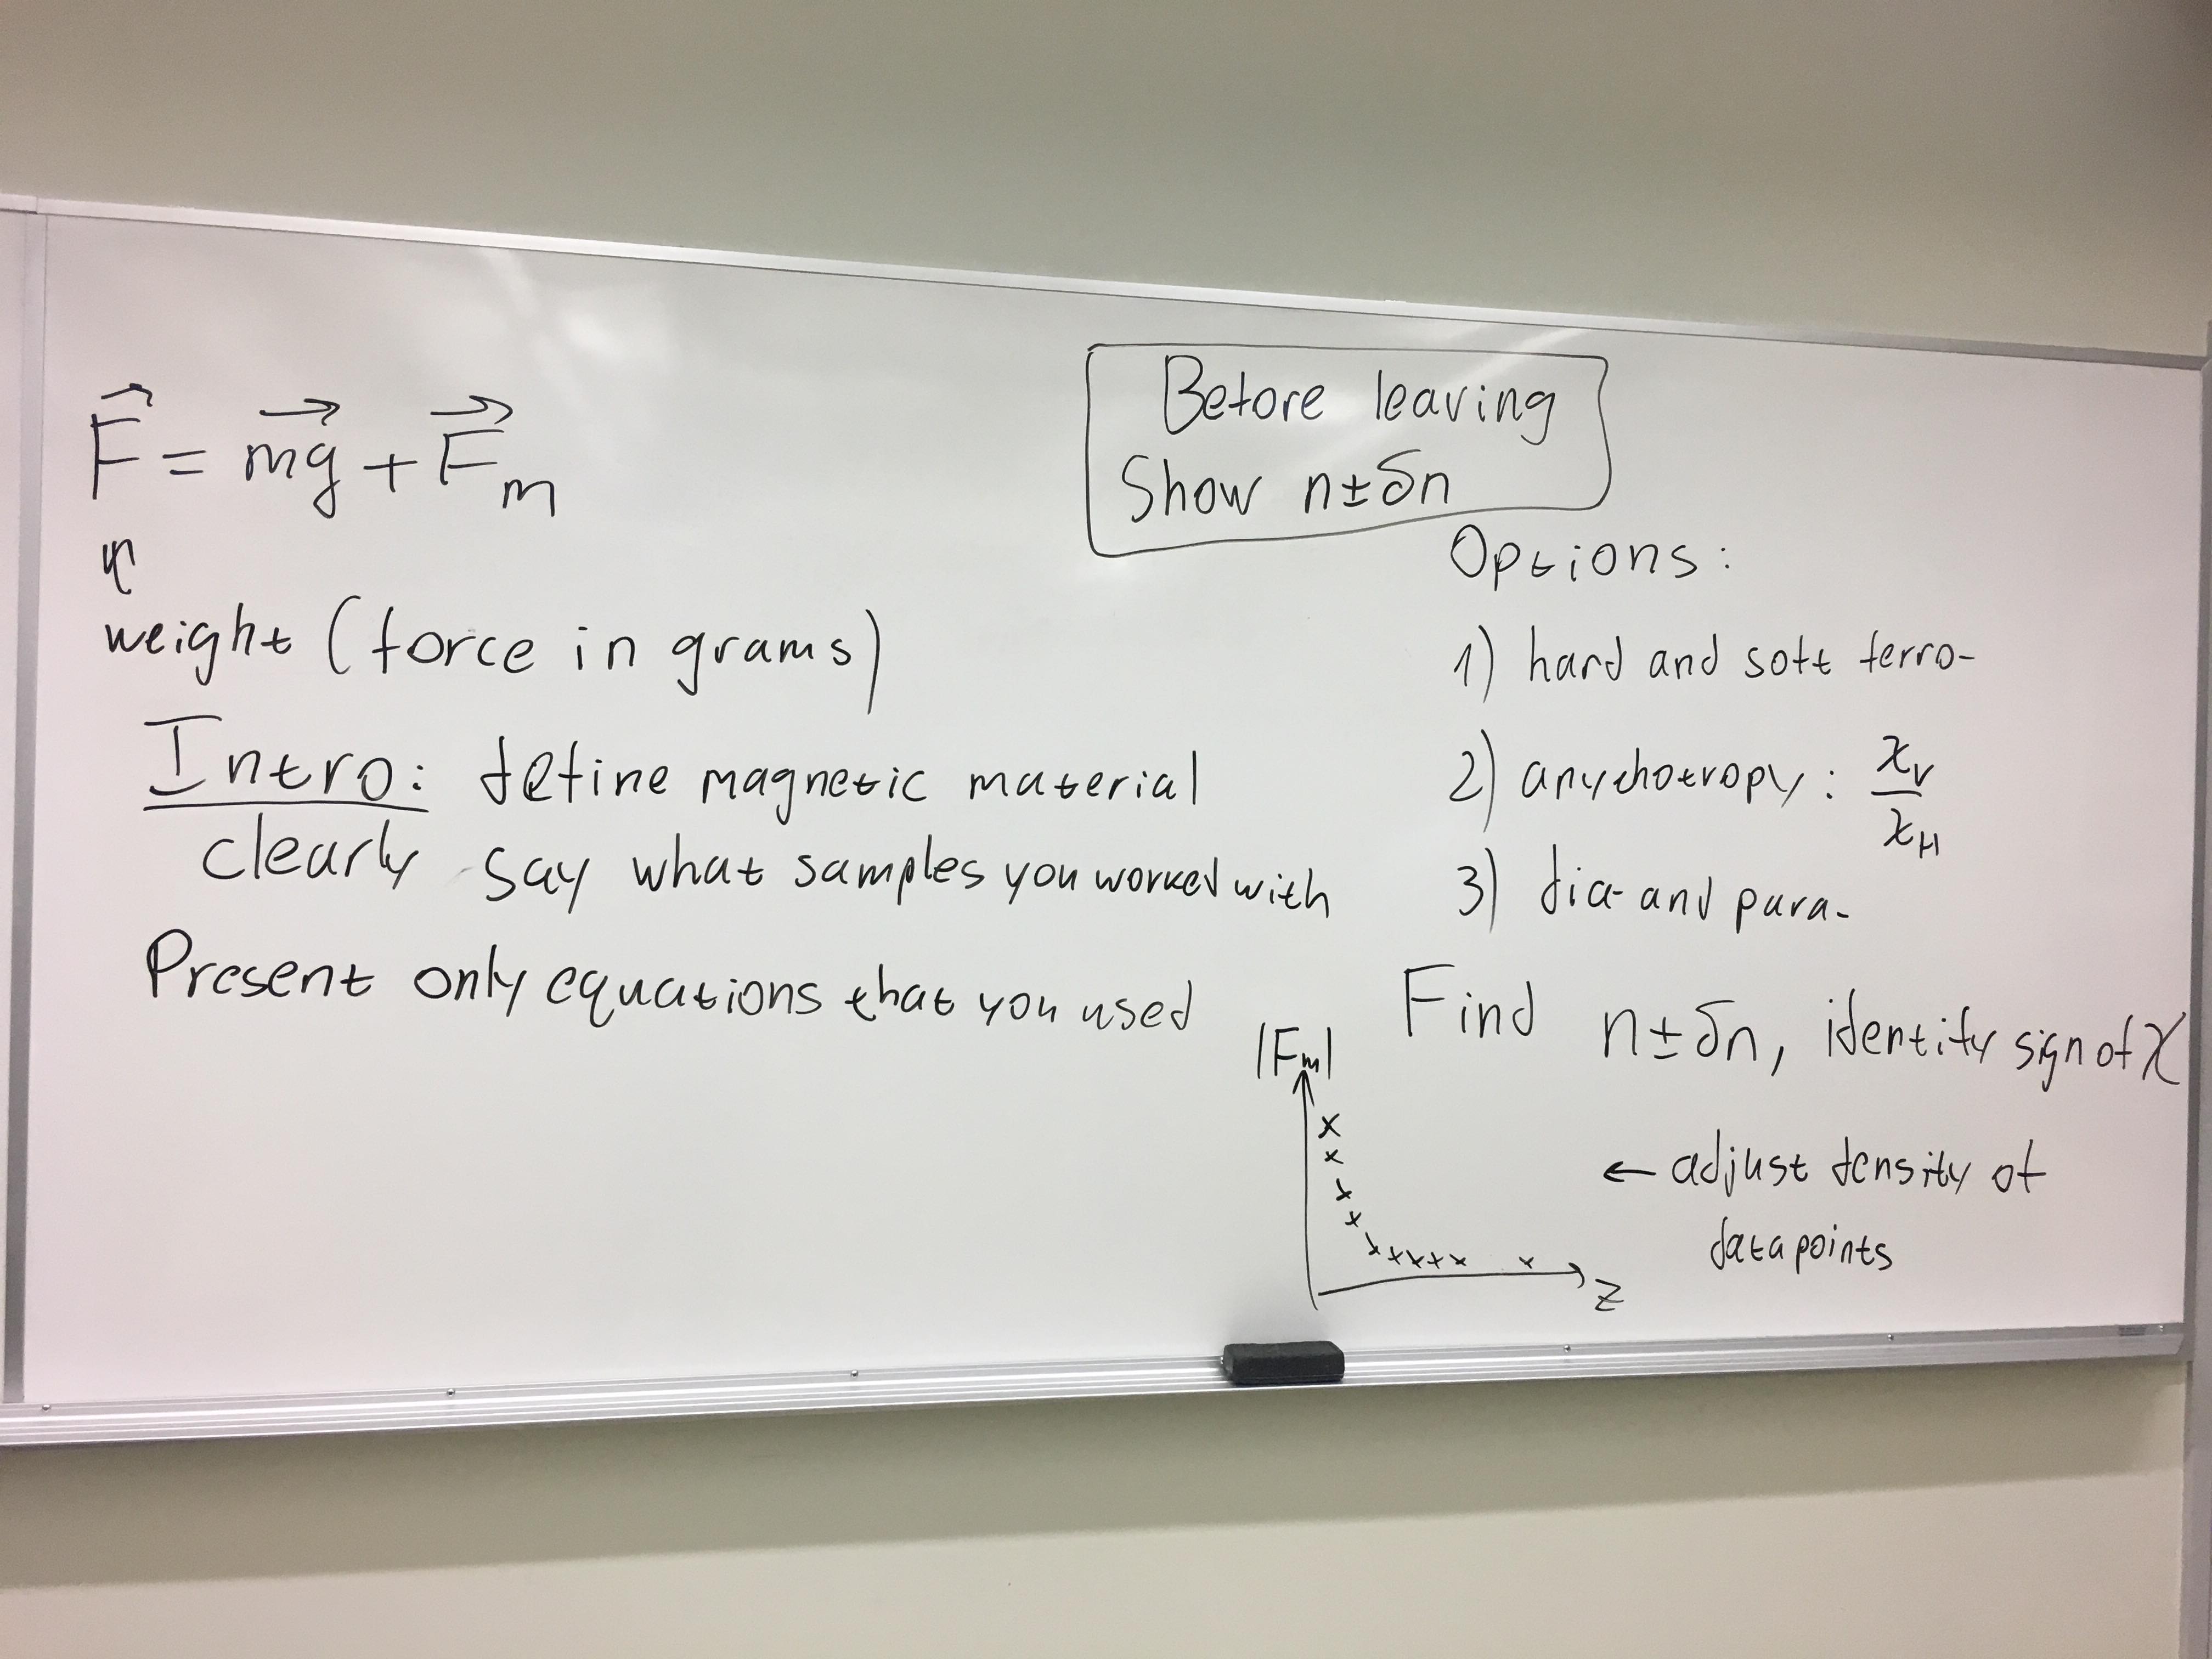 F = mg + Fm
weight (force in grams)
Intro: define magnetic material
clearly say what samples you worked with
Present only equations that you used
Before leaving
Show n±δn
Options:
1) hard and soft ferro-
2) anychotropy: χV/χH
3) dia- and para-
Find n±δn, identify sign of χ
|Fm|
z
← adjust density of
datapoints